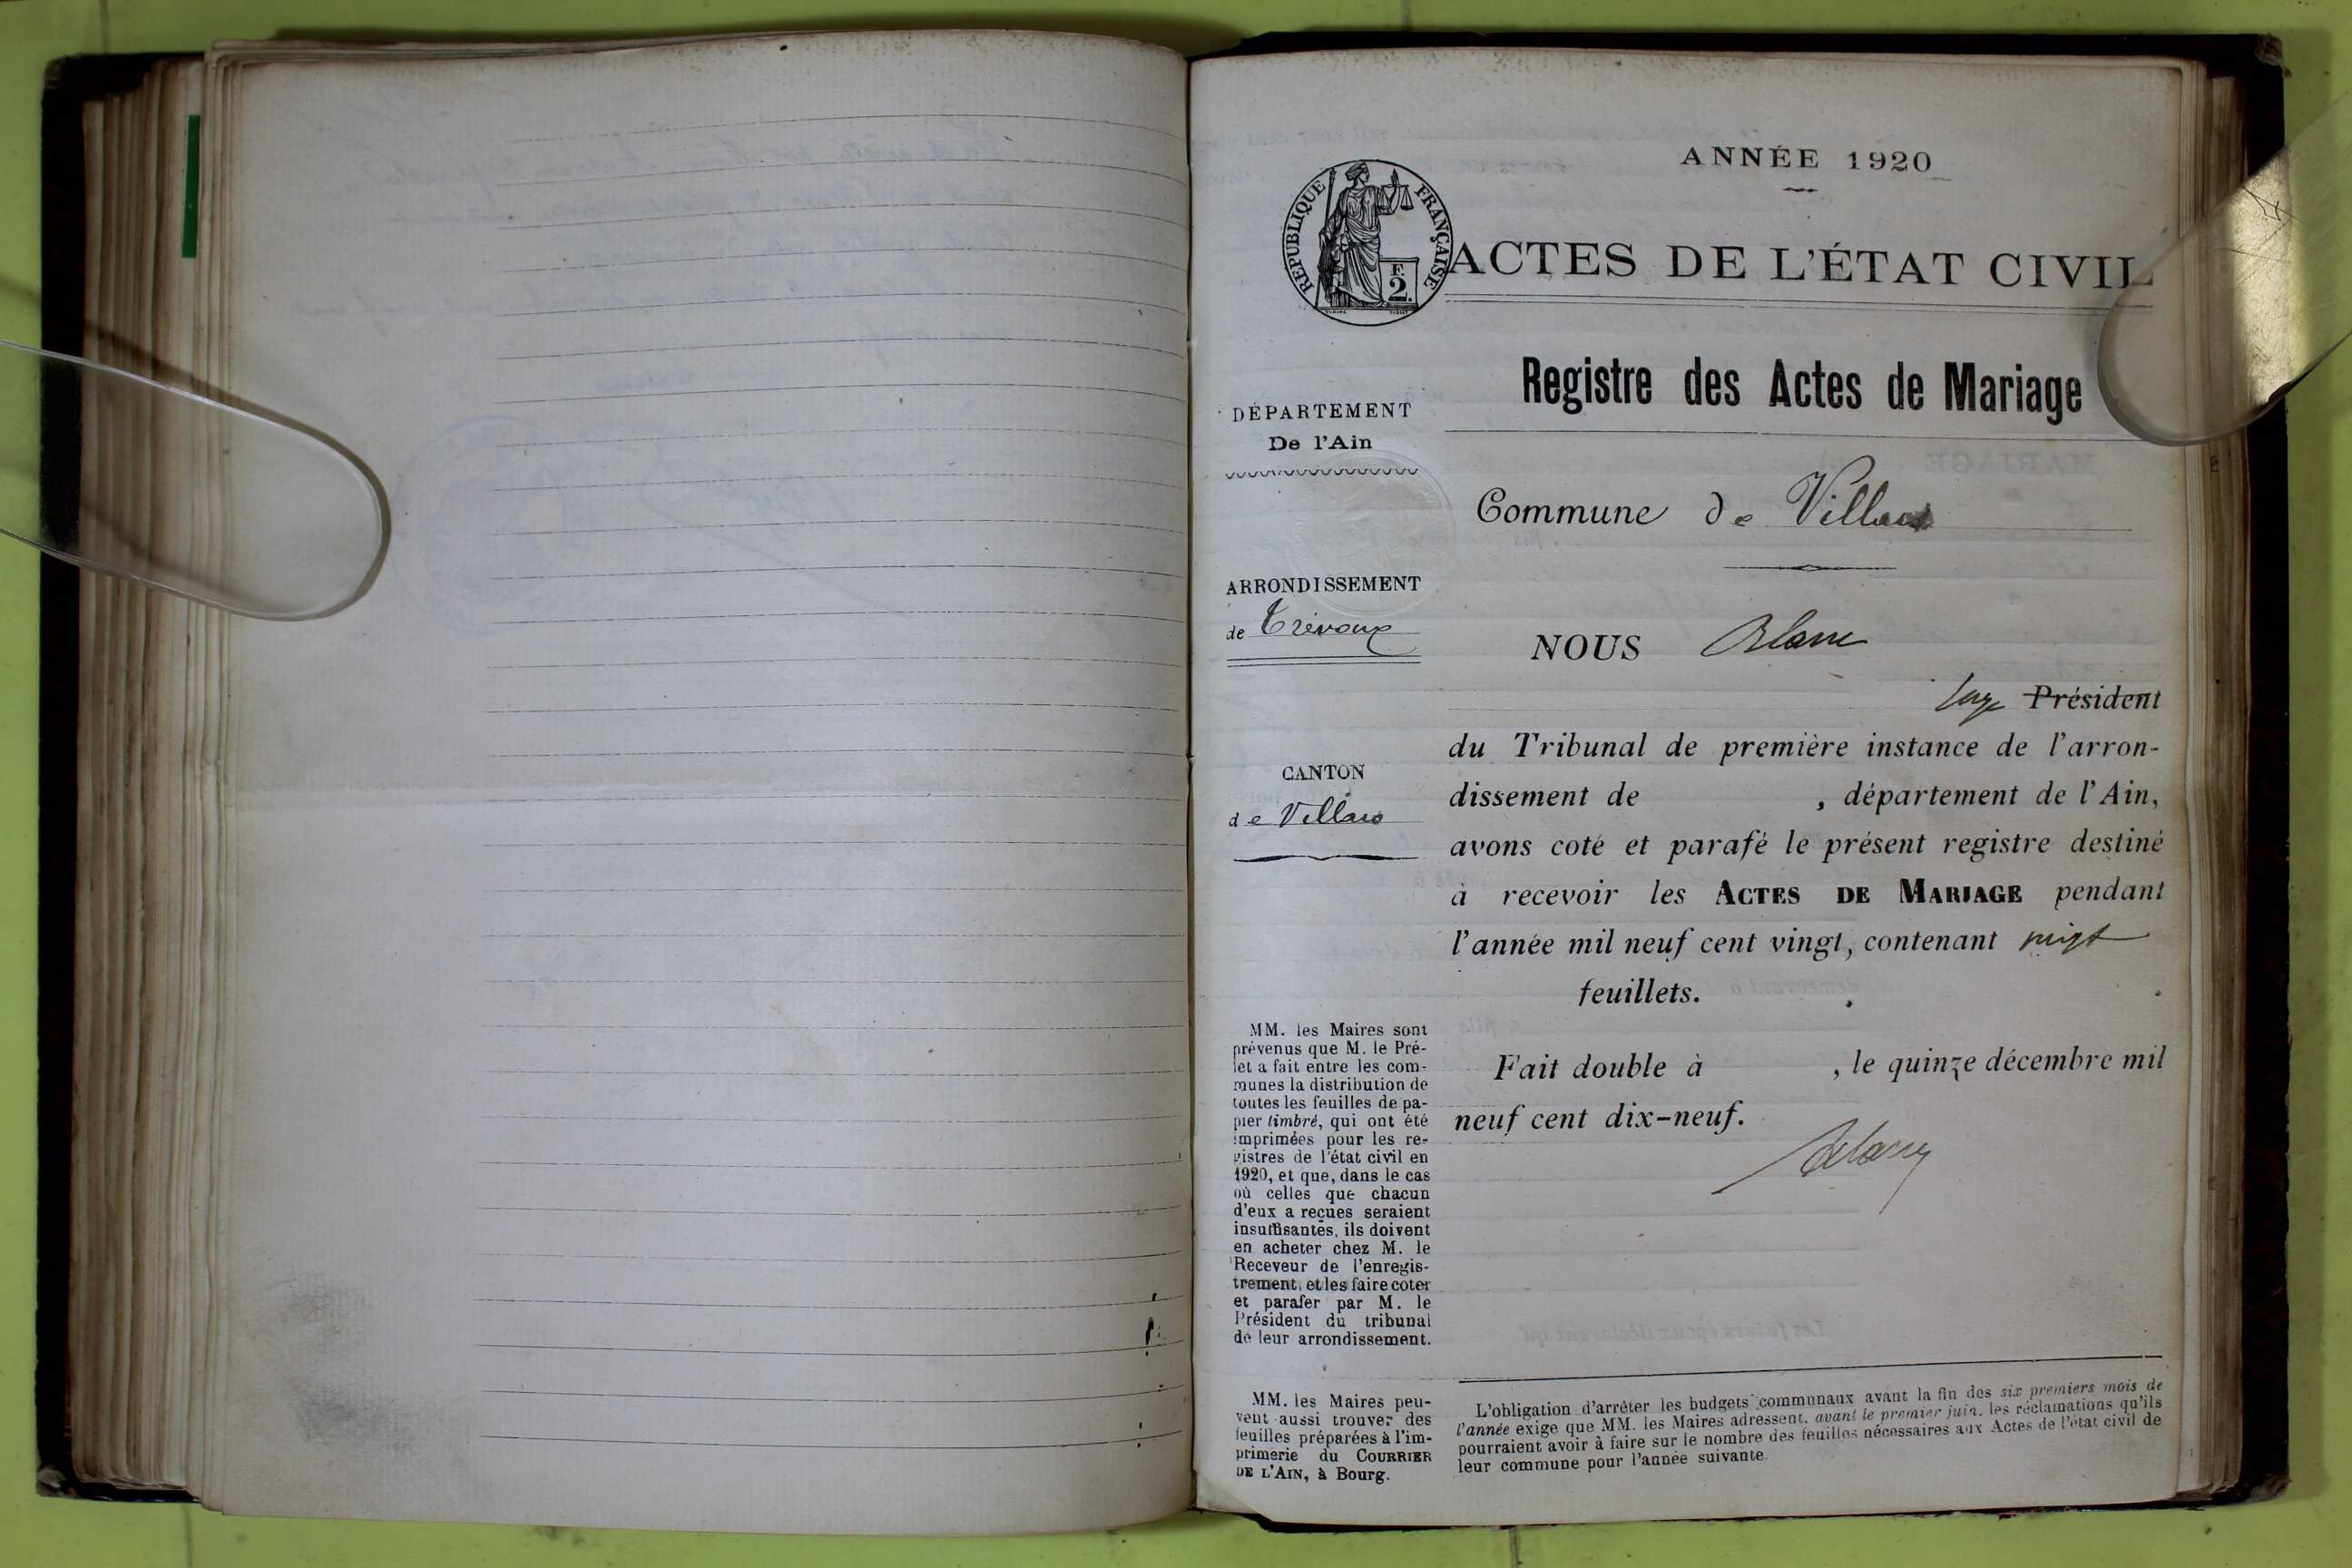 ANNÉE 1920
RÉPUBLIQUE FRANÇAISE
F.
2.
ACTES DE L'ÉTAT CIVIL
Registre des Actes de Mariage
DÉPARTEMENT
De l'Ain
Commune de Villars
ARRONDISSEMENT
de Trévoux
CANTON
de Villars
NOUS
juge Président
du Tribunal de première instance de l'arron-
dissement de , département de l'Ain,
avons coté et parafé le présent registre destiné
à recevoir les ACTES DE MARIAGE pendant
l'année mil neuf cent vingt, contenant vingt
feuillets.
Fait double à , le quinze décembre mil
neuf cent dix-neuf.
MM. les Maires sont
prévenus que M. le Pré-
fet a fait entre les com-
munes la distribution de
toutes les feuilles de pa-
pier timbré, qui ont été
imprimées pour les re-
gistres de l'état civil en
1920, et que, dans le cas
où celles que chacun
d'eux a reçues seraient
insuffisantes, ils doivent
en acheter chez M. le
Receveur de l'enregis-
trement, et les faire coter
et parafer par M. le
Président du tribunal
de leur arrondissement.
MM. les Maires peu-
vent aussi trouver des
feuilles préparées à l'im-
primerie du COURRIER
DE L'AIN, à Bourg.
L'obligation d'arrêter les budgets communaux avant la fin des six premiers mois de
l'année exige que MM. les Maires adressent, avant le premier juin, les réclamations qu'ils
pourraient avoir à faire sur le nombre des feuilles nécessaires aux Actes de l'état civil de
leur commune pour l'année suivante.